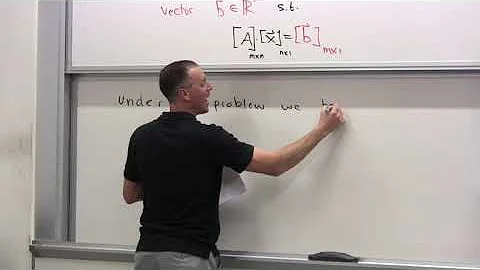 vector b⃗ ∈ ℝ s.t.
[A]ₘₓₙ · [x⃗]ₙₓ₁ = [b⃗]ₘₓ₁
Under problem we